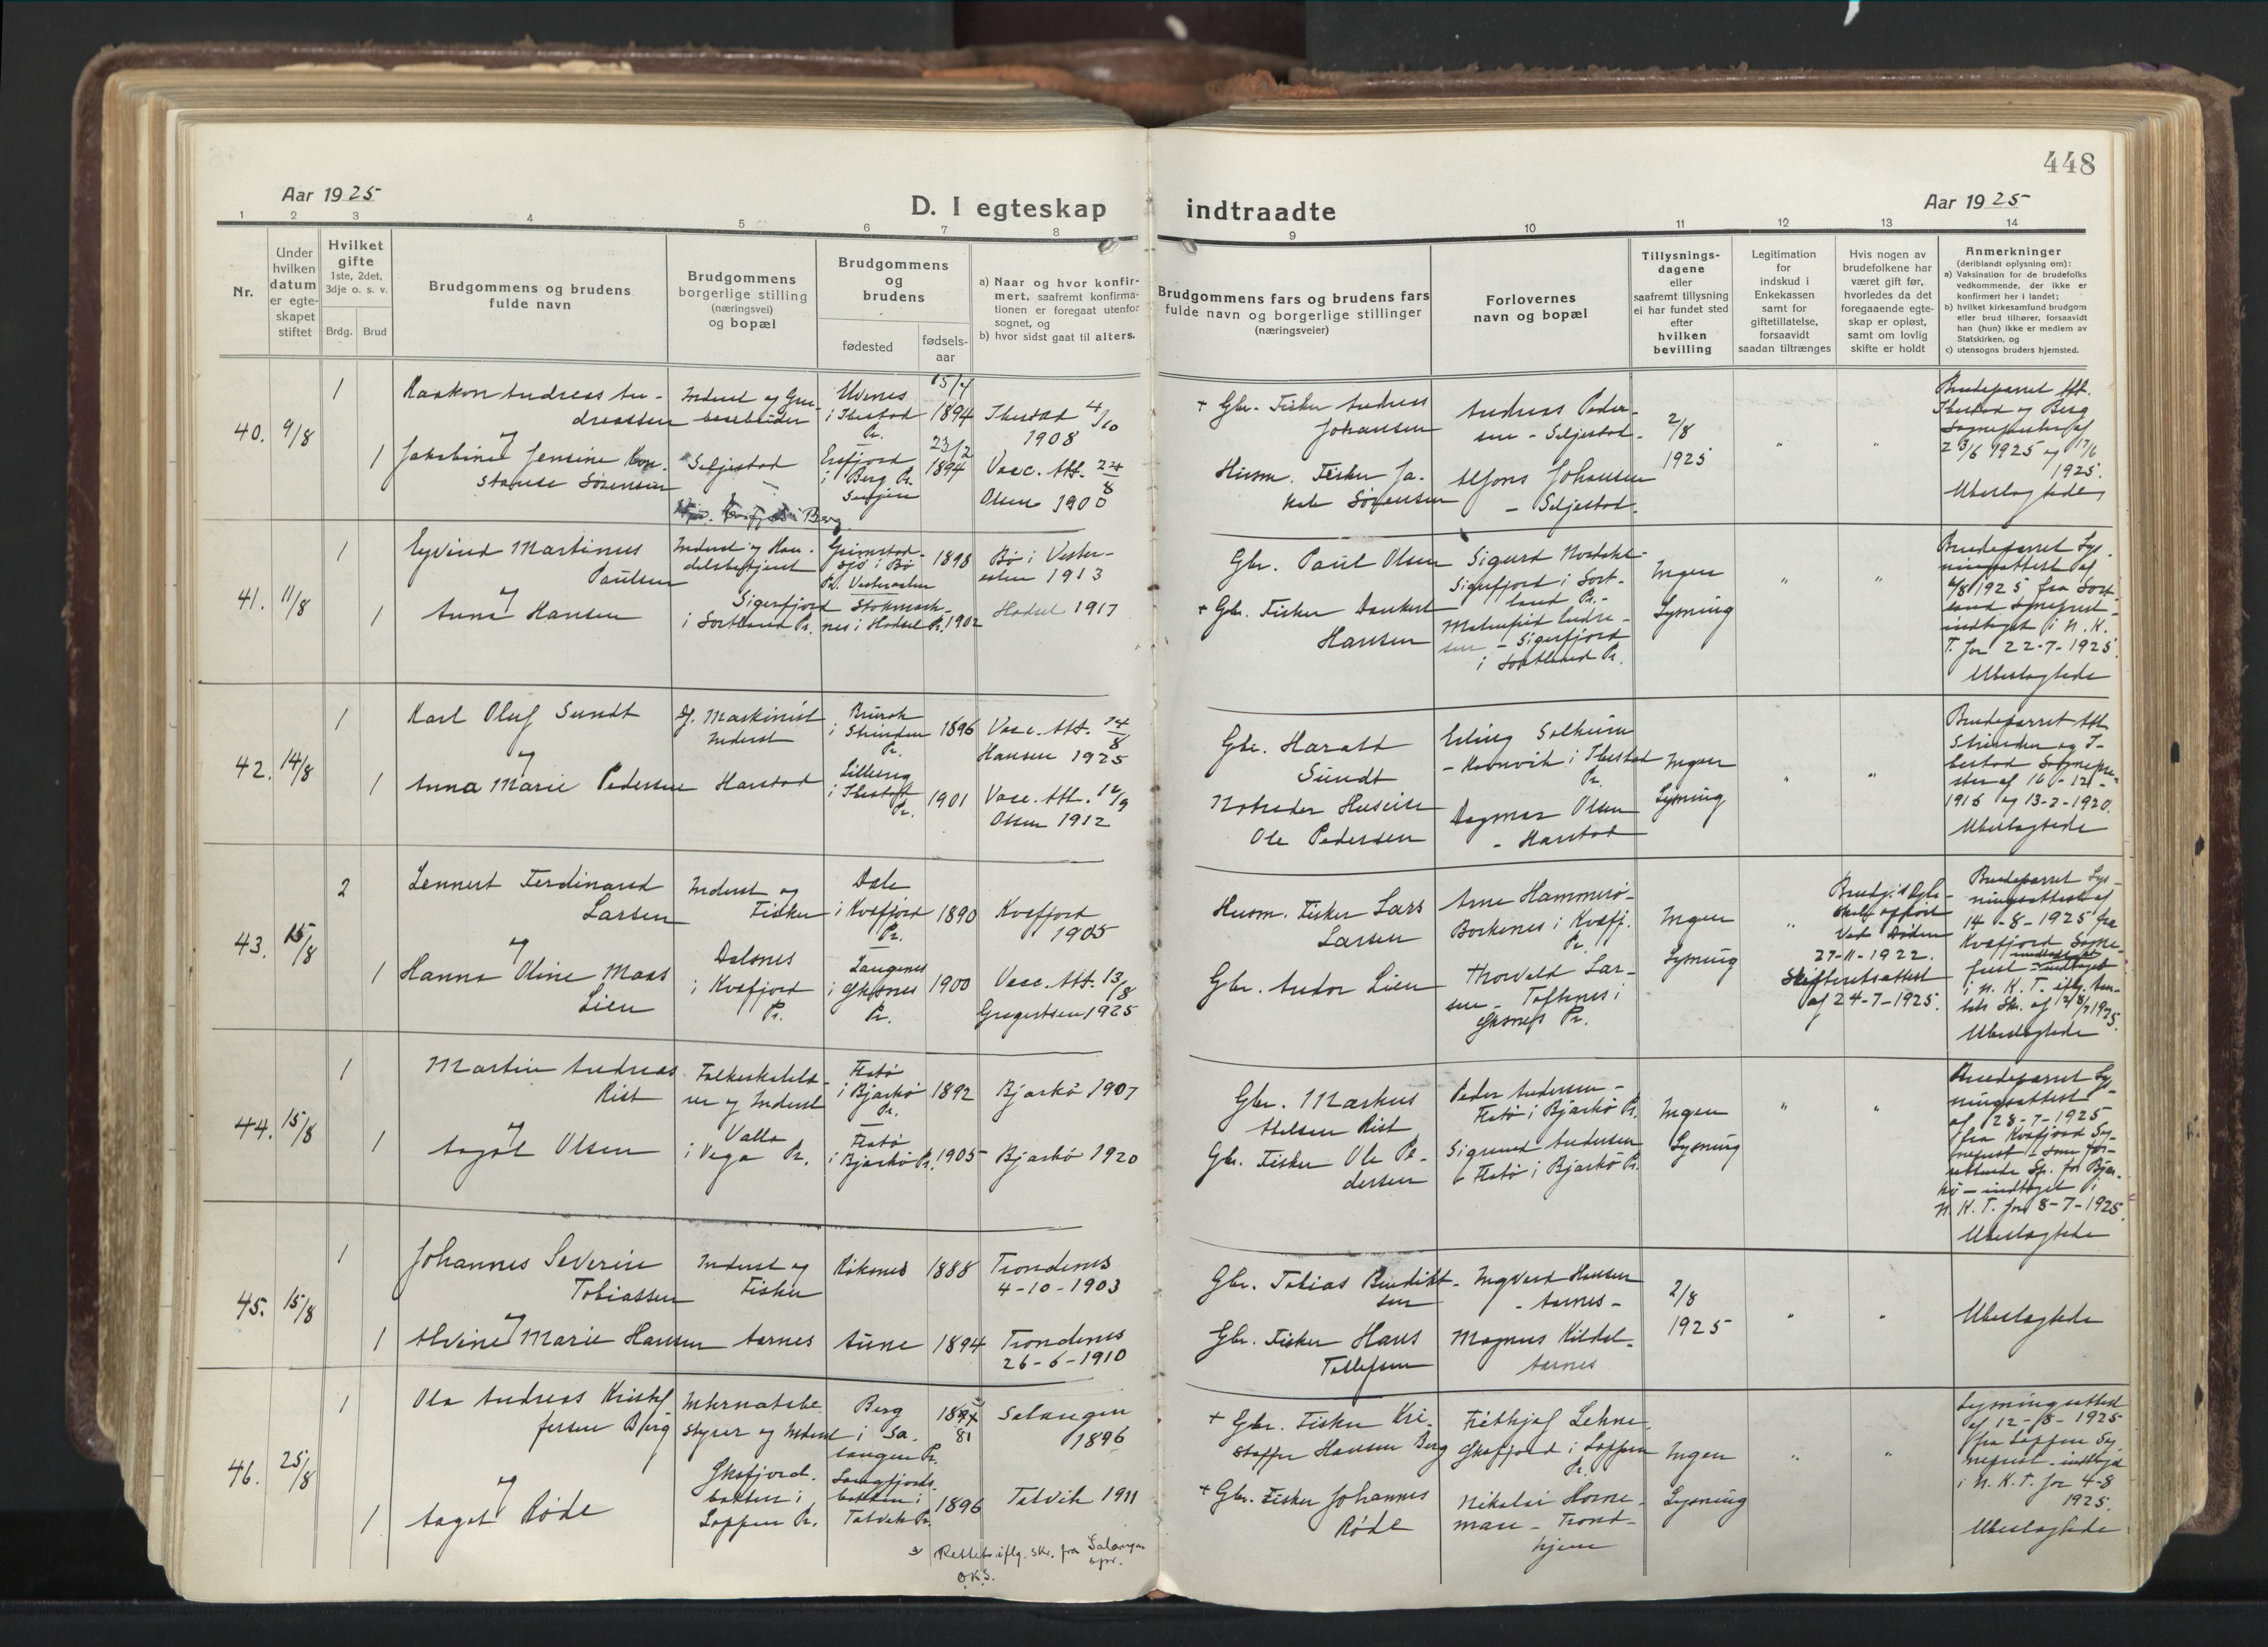 448
Aar 1925
D. I egteskap indtraadte
Aar 1925
1 2 3 4 5 6 7 8 9 10 11 12 13 14
Nr.
Under
hvilken
datum
er egte-
skapet
stiftet
Hvilket
gifte
1ste, 2det,
3dje o. s. v.
Brdg. Brud
Brudgommens og brudens
fulde navn
Brudgommens
borgerlige stilling
(næringsvei)
og bopæl
Brudgommens
og
brudens
fødested
fødsels-
aar
a) Naar og hvor konfir-
mert, saafremt konfirma-
tionen er foregaat utenfor
sognet, og
b) hvor sidst gaat til alters.
Brudgommens fars og brudens fars
fulde navn og borgerlige stillinger
(næringsveier)
Forlovernes
navn og bopæl
Tillysnings-
dagene
eller
saafremt tillysning
ei har fundet sted
efter
hvilken
bevilling
Legitimation
for
indskud i
Enkekassen
samt for
giftetillatelse,
forsaavidt
saadan tiltrænges
Hvis nogen av
brudefolkene har
været gift før,
hvorledes da det
foregaaende egte-
skap er opløst,
samt om lovlig
skifte er holdt
Anmerkninger
(deriblandt oplysning om):
a) Vaksination for de brudefolks
vedkommende, der ikke er
konfirmert her i landet;
b) hvilket kirkesamfund brudgom
eller brud tilhører, forsaavidt
han (hun) ikke er medlem av
Statskirken, og
c) utensogns bruders hjemsted.
40. 9/8
1
Haakon Andreas An-
dreassen
og
1
Jakobine Jensine Kon-
stanse Sørensen
Inderst og
Seljestad
i Berg
i Ibestad
Pr.
15/4
1894
Ersfjord
i Berg Pr.
Senjen
23/2
1894
Ibestad 4/10
1908
Vacc. Att. 24/8
Olsen 1900
+ Gbr. Fisker Andreas
Johansen
Husm. Fisker Ja-
kob Sørensen
Andreas Peder-
sen - Seljestad.
Alfons Johansen
- Seljestad.
2/8
1925
"
"
Brudeparret Att.
Ibestad og Berg
Sogneprester af
23/6 1925 og 17/6
1925.
Ubeslagtede
41. 11/8
1
Eyvind Martinus
Paulsen
og
1
Anna Hansen
Inderst og Han-
delsbetjent
Sigerfjord
i Sortland Pr.
Grimstad-
sjø i Bø
Pr. Vesteraalen
1898
Stokmark-
nes i Hadsel Pr. 1902
Bø i Vester-
aalen 1913
Hadsel 1917
Gbr. Paul Olsen
+ Gbr. Fisker Dankert
Hansen
Sigurd Nordahl-
Sigerfjord i Sort-
land Pr.-
- Sigerfjord
i Sortland Pr.
Ingen
Lysning
"
"
Brudeparret Lys-
ningsattest af
4/8 1925 fra Sort-
land Sogneprest -
indtaget i N. K.
T. for 22-7-1925.
Ubeslagtede
42. 14/8
1
Karl Oluf Sundt
og
1
Anna Marie Pedersen
Maskinist
Inderst
Harstad
i Strinden
Pr.
1896
i Ibestad
Pr.
1901
Vacc. Att. 14/8
Hansen 1925
Vacc. Att. 12/9
Olsen 1912
Gbr. Harald
Sundt
Notreder Huseier
Ole Pedersen
Erling Solheim
- Havnvik i Ibestad
Pr.
Dagmar Olsen
- Harstad
Ingen
Lysning
"
"
Brudeparret Att.
Strinden og I-
bestad Sognepre-
ster af 16-12-
1915 og 13-2-1920.
Ubeslagtede
43. 15/8
2
Lennert Ferdinand
Larsen
og
1
Hanna Oline Maas
Lien
Inderst og
Fisker
Dalsnes
i Kvæfjord
Pr.
Dale
i Kvæfjord
Pr.
1890
Langenes
i Øksnes
Pr.
1900
Kvæfjord
1905
Vacc. Att. 13/8
Gregertsen 1925
Husm. Fisker Lars
Larsen
Gbr. Andor Lien
Arne Hammerø-
Borkenes i Kvæfj.
Pr.
Thorvald Lar-
sen - Toftenes i
Øksnes Pr.
Ingen
Lysning
"
Brudg.'s Egte-
skab opløst
Ved Døden
27-11-1922.
Skifteretsattest
af 24-7-1925.
Brudeparret Lys-
ningsattest af
14-8-1925 fra
Kvæfjord Sogne-
prest - indtaget
i N. K. T. iflg.
Ubeslagtede
44. 15/8
1
Martin Andreas
Rist
og
1
Aagot Olsen
Folkeskolelæ-
rer og Inderst
Valla
i Vega Pr.
Flatø
i Bjarkø
Pr.
1892
Flatø
i Bjarkø Pr. 1905
Bjarkø 1907
Bjarkø 1920
Gbr. Markus
Nilsen Rist
Gbr. Fisker Ole Pe-
dersen
Peder Andersen -
Flatø i Bjarkø Pr.
Sigmund Andersen
- Flatø i Bjarkø Pr.
Ingen
Lysning
"
"
Brudeparret Lys-
ningsattest
af 28-7-1925
fra Kvæfjord Sog-
neprest - som for-
rettende Sp. for Bjar-
kø - indtaget i
N. K. T. for 8-7-1925.
Ubeslagtede
45. 15/8
1
Johannes Severin
Tobiassen
og
1
Alvine Marie Hansen
Inderst og
Fisker
Aarnes
Røkenes 1888
Aune 1894
Trondenes
4-10-1903
Trondenes
26-6-1910
Gbr. Tobias Benedikt-
sen
Gbr. Fisker Hans
Tollefsen
Ingvard Hansen
- Aarnes -
Magnus Kildal-
Aarnes
2/8
1925
"
"
Ubeslagtede
46. 25/8
1
Ole Andreas Kristof-
fersen Berg
og
1
Aagot Røde
Internatsbe-
styrer og Inderst
Øksfjord-
botten i
Loppen Pr.
Berg
i Sa-
langen Pr.
81
Langfjords-
botten i
Talvik Pr.
1896
Salangen
1896
Talvik 1911
+ Gbr. Fisker Kri-
stoffer Hansen Berg
+ Gbr. Fisker Johannes
Røde
Frithjof Lehne
Øksfjord i Loppen
Pr.
Nikolai Horne-
man - Trond-
hjem
Ingen
Lysning
"
"
Lysningsattest
af 12-8-1925
fra Loppen Sog-
neprest - indtaget
i N. K. T. for 4-8
1925.
Ubeslagtede
Rettet iflg. skr. fra Salangen
spr.
O.K.S.